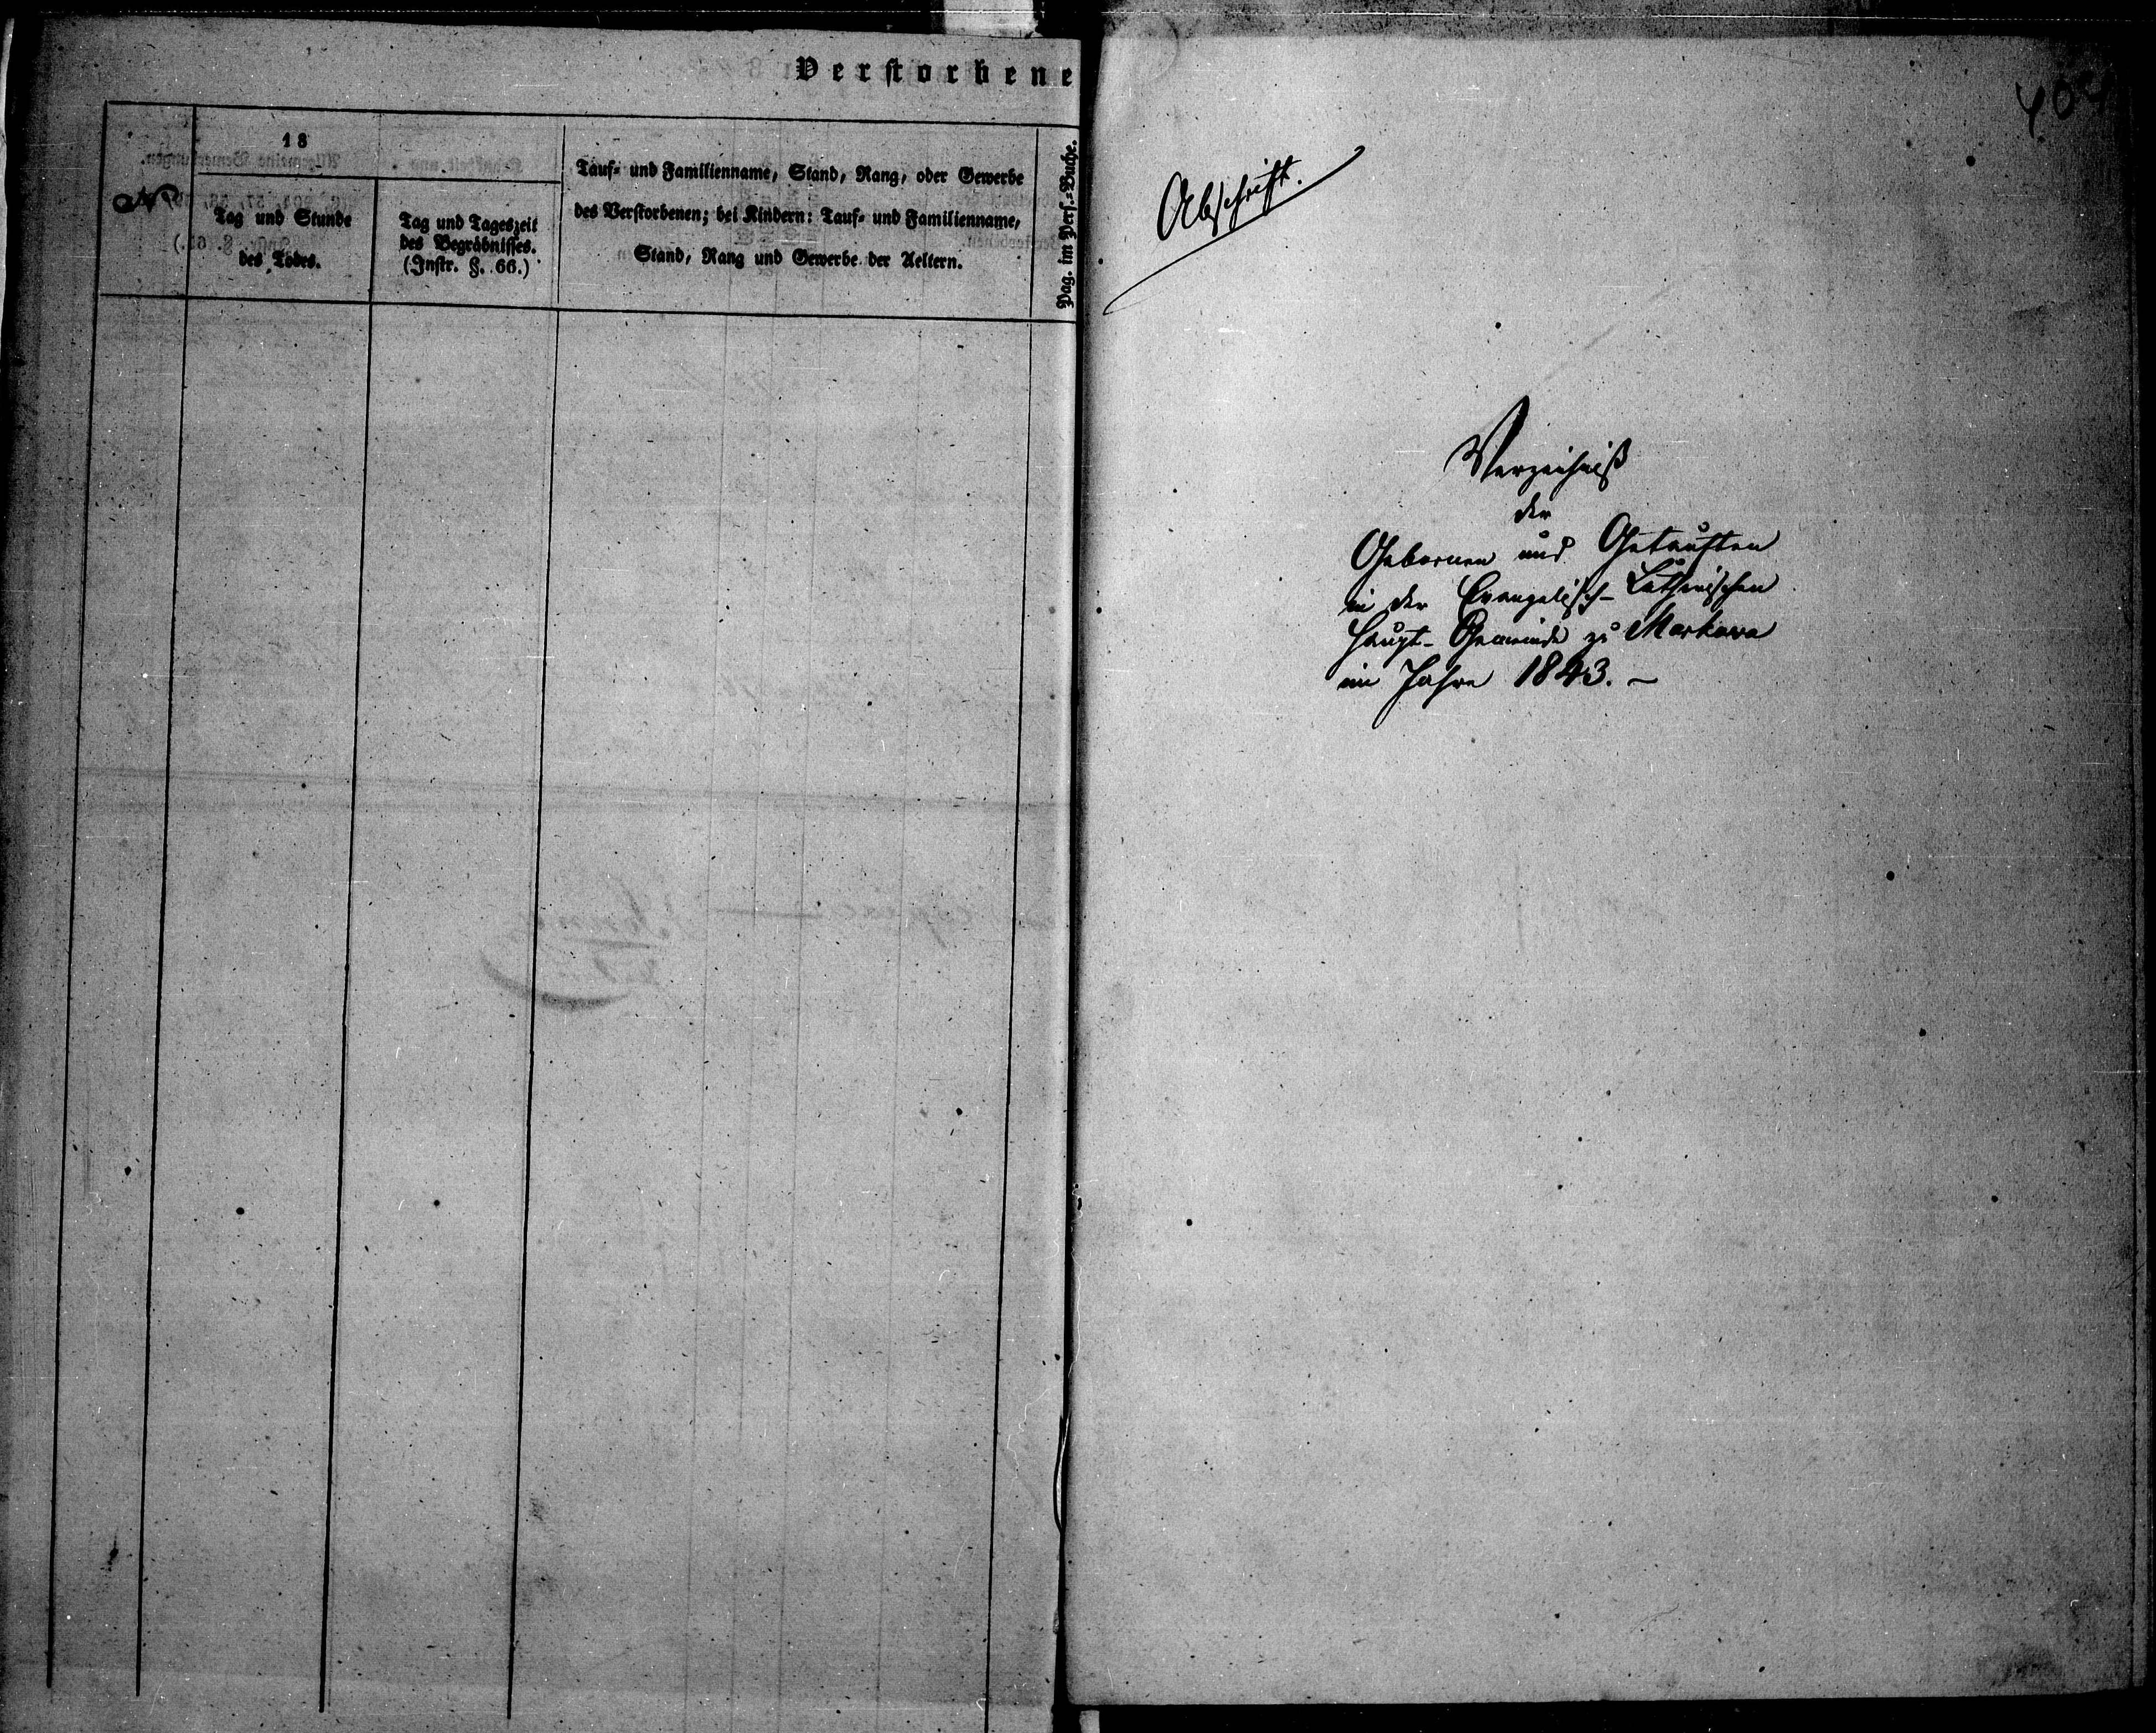 Verstorbene
№
18
Tag und Stunde
des Todes.
Tag und Tageszeit
des Begräbnisses.
(Instr. §. 66.)
Tauf- und Familienname, Stand, Rang, oder Gewerbe
des Verstorbenen; bei Kindern: Tauf- und Familienname,
Stand, Rang und Gewerbe der Aeltern.
Pag. im Pers.-Buche.
Abschrift.
Verzeichniß
der
Gebornen und Getauften
in der Evangelisch-Lutherischen
Haupt-Gemeinde zu Morkowa
im Jahre 1843. –